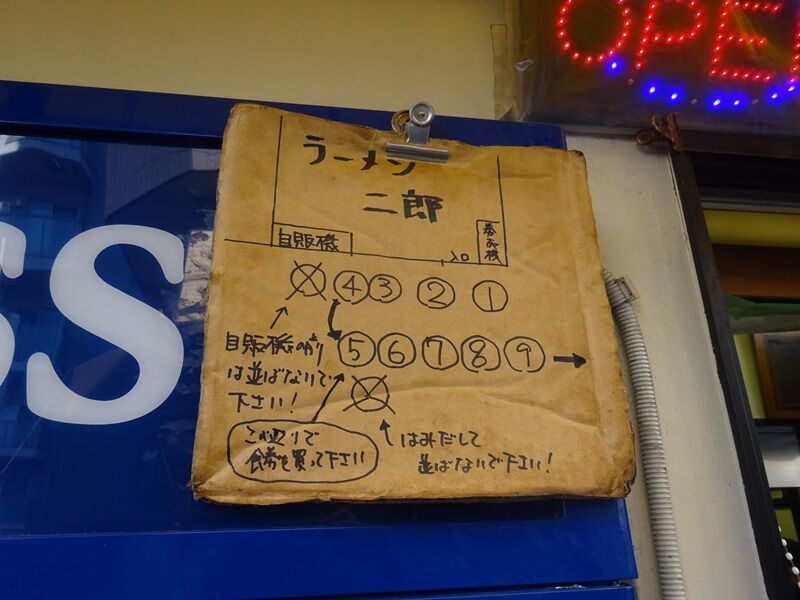 OPEN
SS
ラーメン
二郎
自販機
入口
券売機
④ ③ ② ①
⑤ ⑥ ⑦ ⑧ ⑨ →
自販機の前
は並ばないで
下さい!
この辺りで
食券を買って下さい
はみだして
並ばないで下さい!